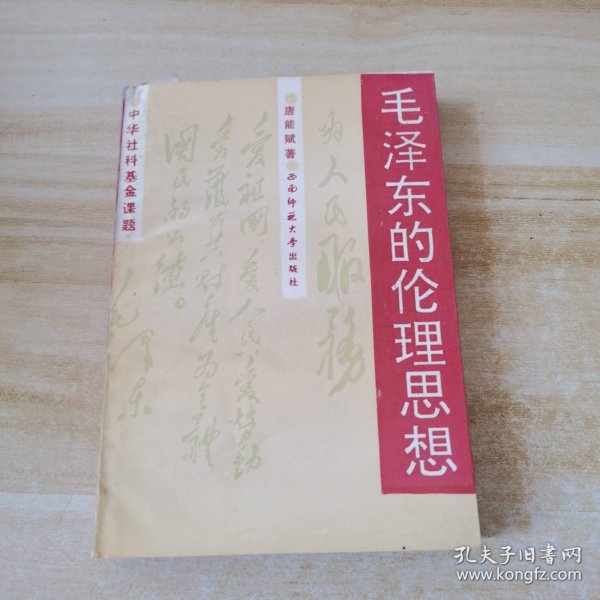 毛泽东的伦理思想
唐能赋著
西南师范大学出版社
为人民服务
爱祖国、爱人民、爱劳动
爱护公共财产为全体
国民的公德。
毛泽东
中华社科基金课题
孔夫子旧书网
www.kongfz.com